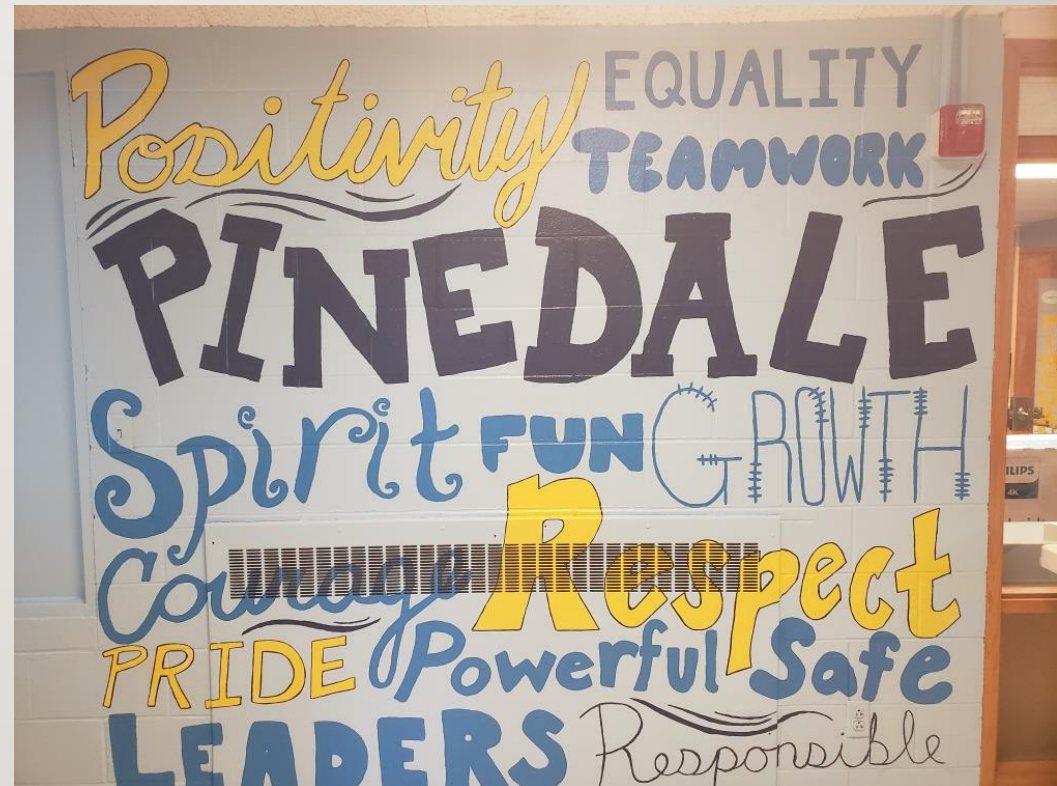 Positivity EQUALITY
TEAMWORK
PINEDALE
Spirit FUN GROWTH
Courage Respect
PRIDE Powerful Safe
LEADERS Responsible
ILIPS
4K